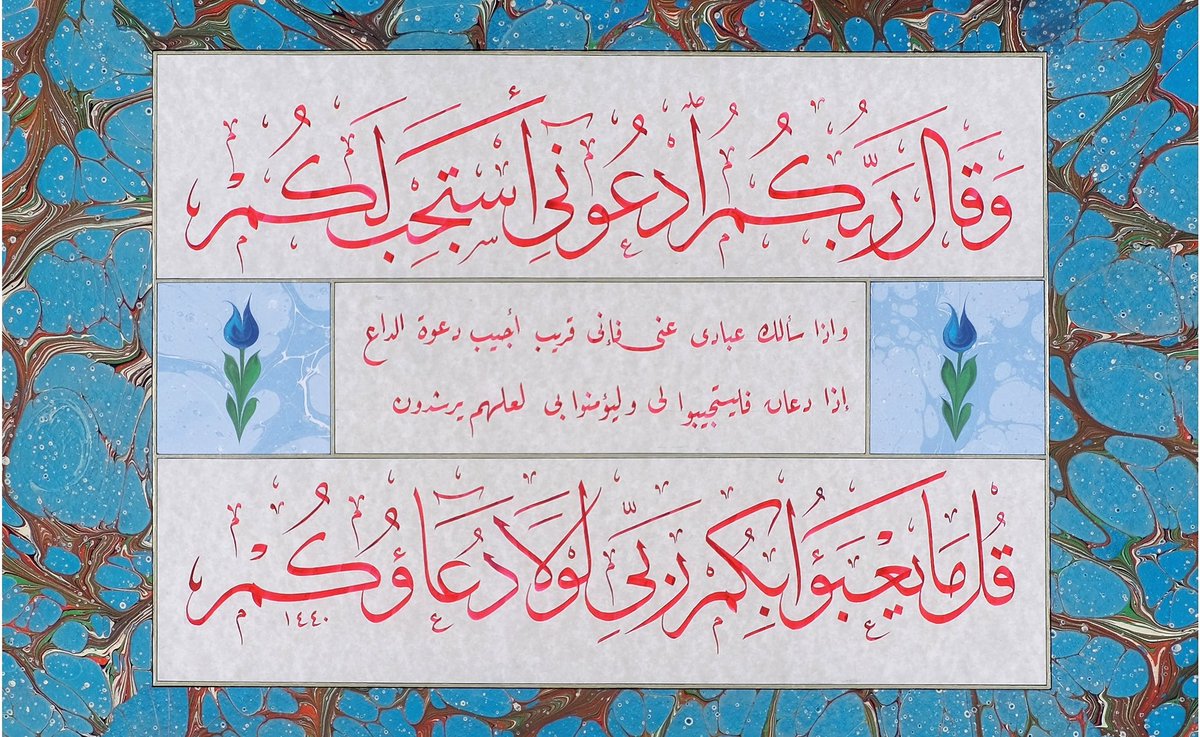 وَقَالَ رَبُّكُمُ ادْعُونِىٓ أَسْتَجِبْ لَكُمْ
واذا سألك عبادى عنى فإنى قريب أجيب دعوة الداع
إذا دعان فليستجيبوا لى وليؤمنوا بى لعلهم يرشدون
قُلْ مَا يَعْبَؤُا بِكُمْ رَبِّى لَوْلَا دُعَآؤُكُمْ
١٤٤٠